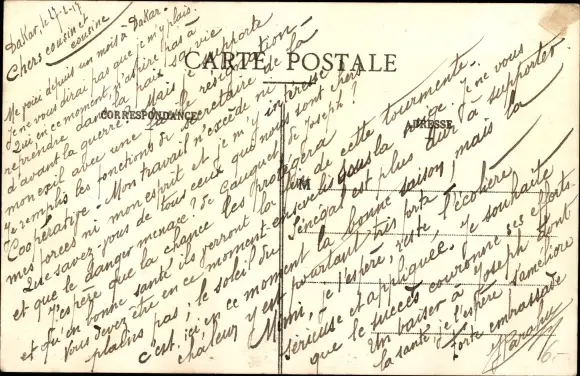 CARTE POSTALE
CORRESPONDANCE
ADRESSE
M
Dakar, le 27-1-17
Chers cousin et
cousine
Me voici depuis un mois à Dakar.
Je ne vous dirai pas que je m'y plais.
Qui, en ce moment, n'aspire pas à
reprendre dans la paix sa vie
d'avant la guerre? Mais je supporte
mon exil avec une résignation
Je remplis les fonctions de secrétaire de la
Coopérative. Mon travail n'excède ni
mes forces ni mon esprit et je m'y intéresse
Que savez-vous de tous ceux qui nous sont chers
et que le danger menace? de Joseph?
J'espère que la chance les protégera
et qu'en bonne santé ils verront la fin de cette tourmente.
Vous devez être en ce moment ensevelis dans la neige. Je ne vous
plains pas; le soleil du Sénégal est plus dur à supporter.
C'est ici en ce moment la bonne saison, mais la
chaleur y est pourtant très forte
Mimi, je l'espère, reste l'écolière
sérieuse et appliquée. Je souhaite
que le succès couronne ses efforts.
Un baiser à Joseph dont
la santé, je l'espère, s'améliore
Forte embrassade